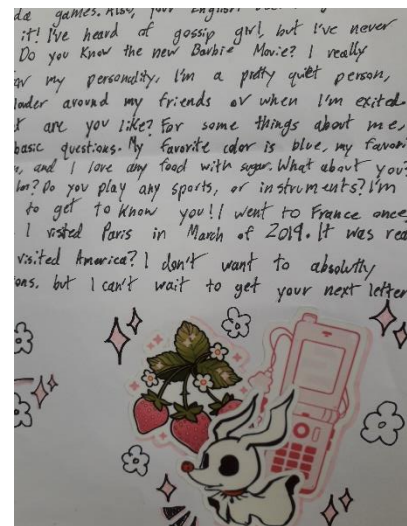 da games. Also, your English
it! I've heard of gossip girl, but I've never
Do you know the new Barbie Movie? I really
my personality, I'm a pretty quiet person,
louder around my friends or when I'm exited.
t are you like? For some things about me,
basic questions. My favorite color is blue, my favori
, and I love any food with sugar. What about you?
lor? Do you play any sports, or instruments? I'm
to get to know you! I went to France once
I visted Paris in March of 2019. It was rea
visited America? I don't want to absolutly
ons. but I can't wait to get your next letter